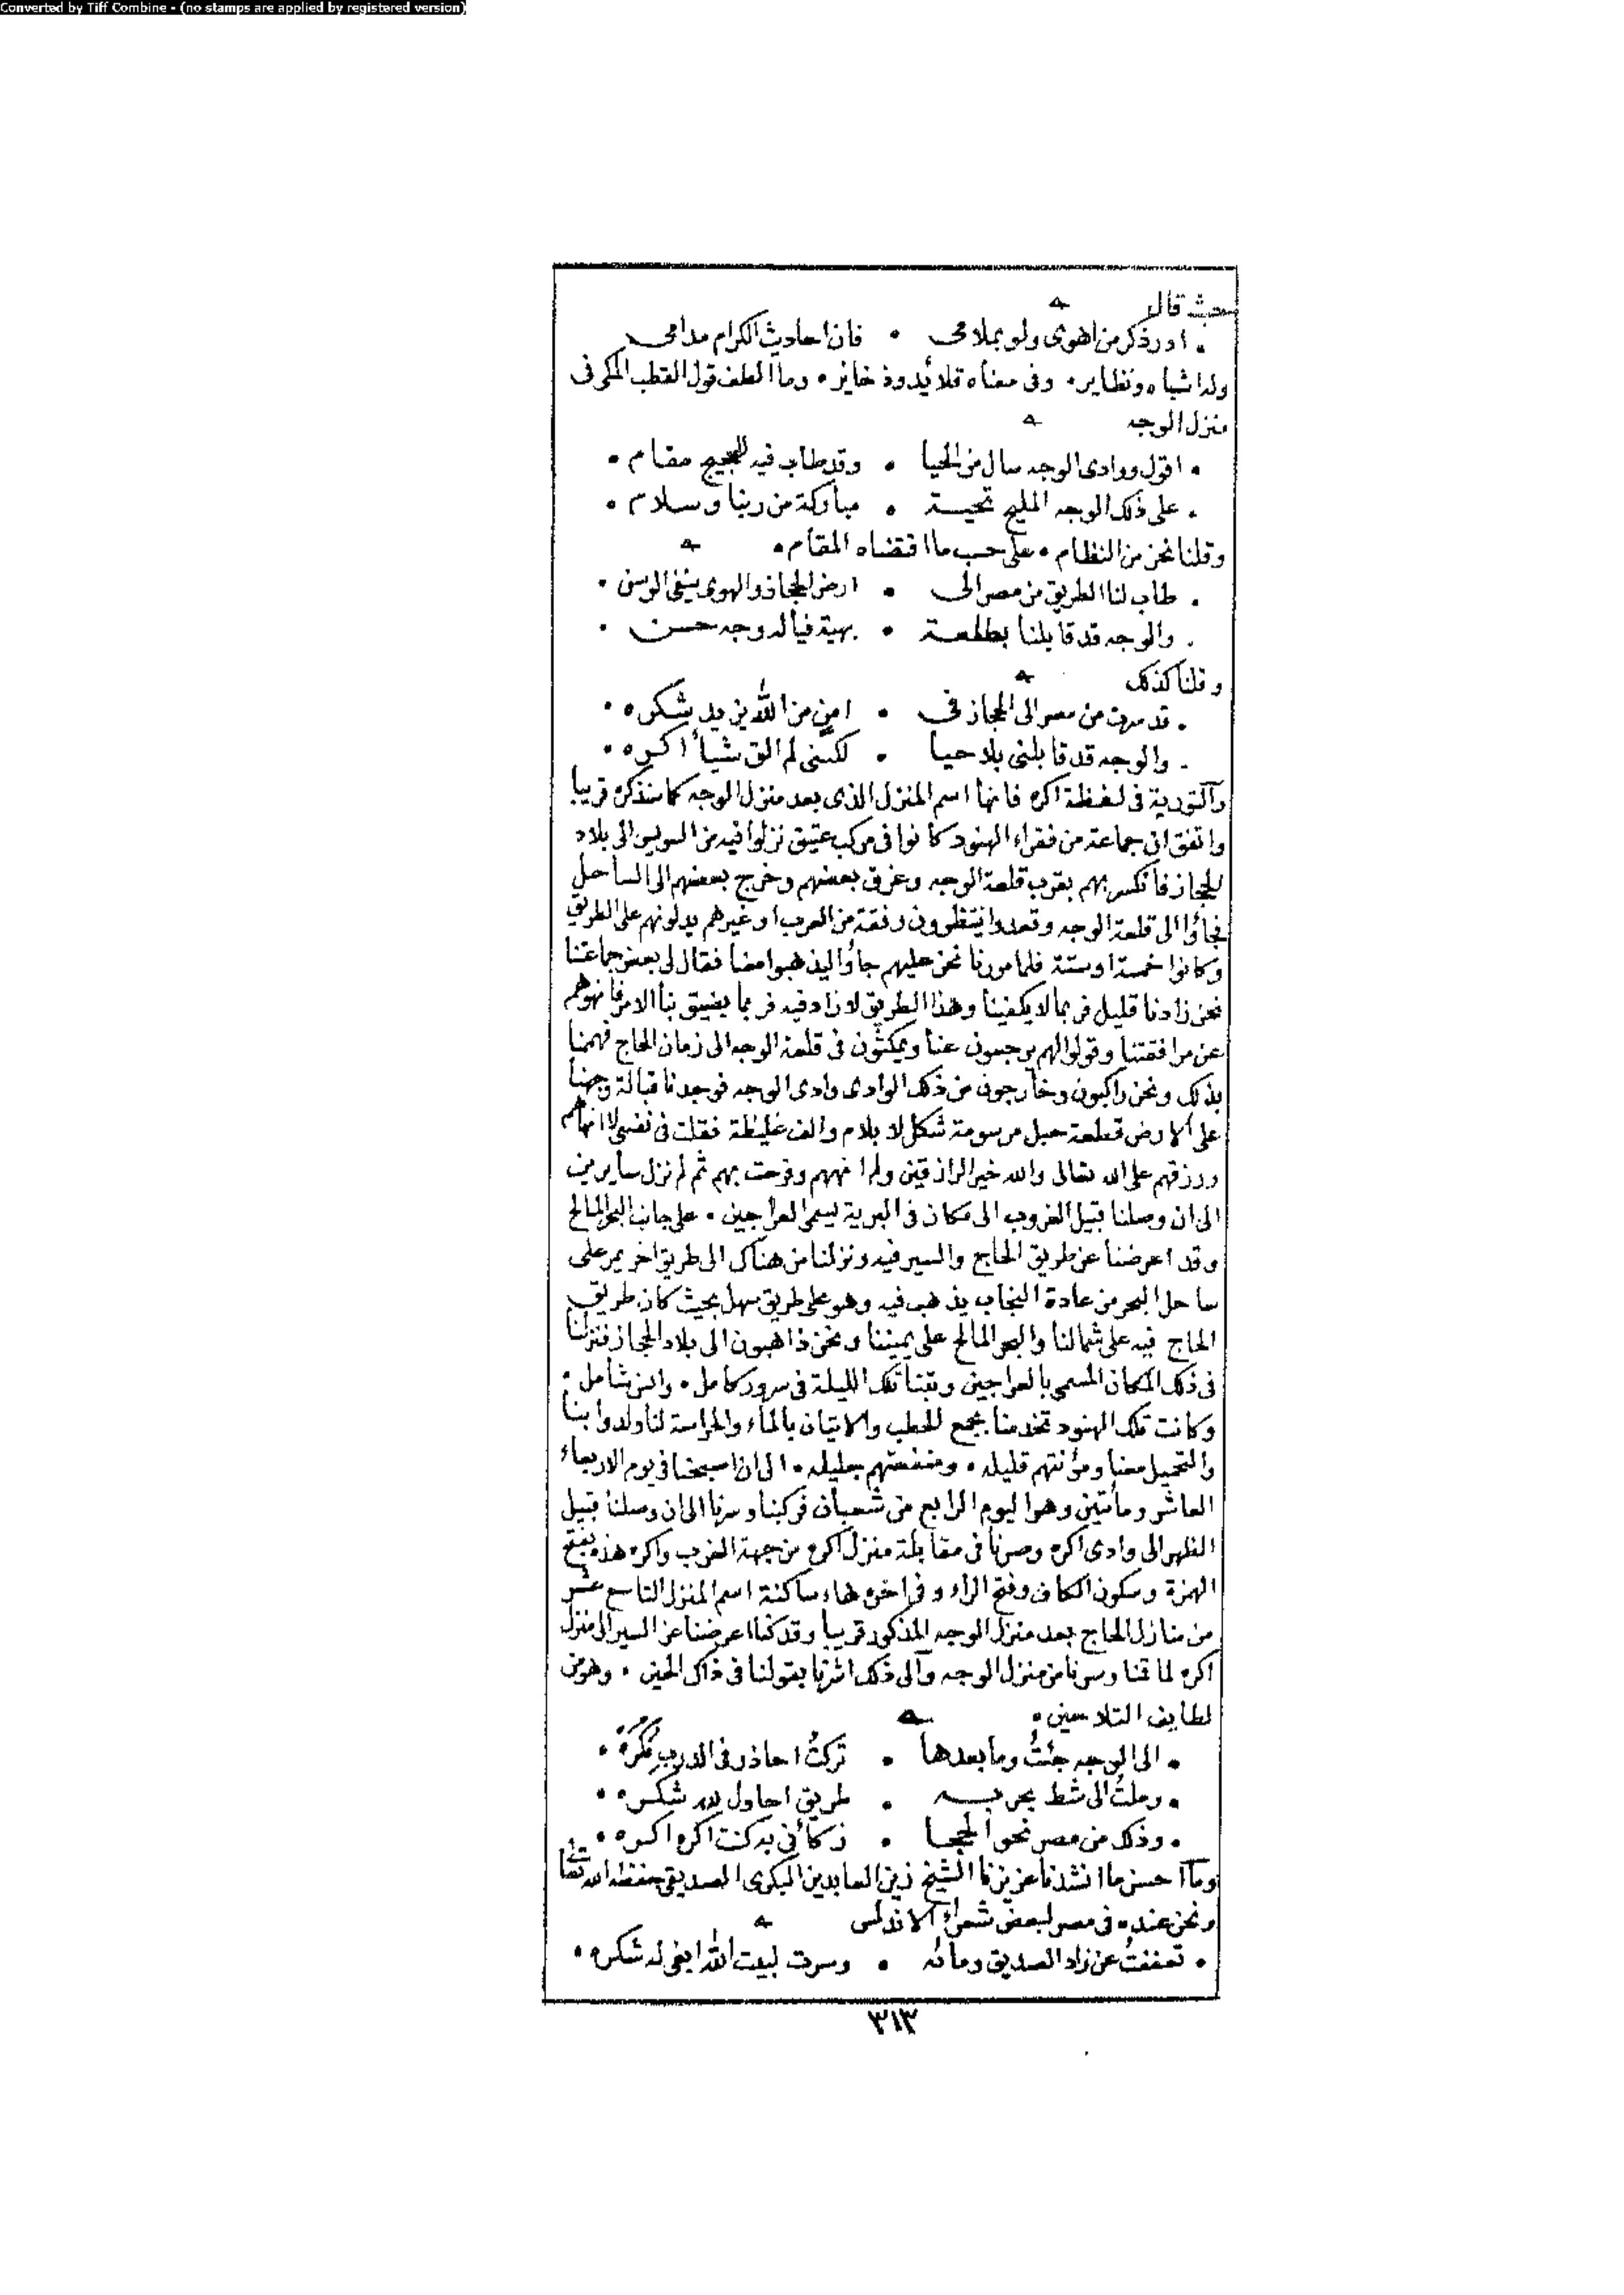 Converted by Tiff Combine - (no stamps are applied by registered version)
حيث قال
• ادر ذكر من اهوى ولو بملامى • فان احاديث الكرام مدامى
وله اشباه ونظاير • وفى معناه قلائد وذخاير • وما الطف قول القطب المكى فى
منزل الوجه
• اقول ووادى الوجه سال من الحيا • وقد طاب فيه للحجيج مقام •
• على ذلك الوجه المليح تحية • مباركة من ربنا وسلام •
وقلنا نحن من النظام • على حسب ما اقتضاه المقام •
• طاب لنا الطريق من مصر الى • ارض الحجاز والهوى ينفى الوسن •
• والوجه قد قابلنا بطلعة • بهية فياله وجه حسن •
وقلنا كذلك
• قد سرت من مصر الى الحجاز فى • امن من الله يزيد شكره •
• والوجه قد قابلنى بلا حيا • لكننى لم الق شيأ اكره •
والتورية فى لفظة اكره فانها اسم المنزل الذى بعد منزل الوجه كما سنذكره قريبا
واتفق ان جماعة من فقراء الهنود كانوا فى مركب عتيق نزلوا فيه من السويس الى بلاد
الحجاز فانكسر بهم بقرب قلعة الوجه وغرق بعضهم وخرج بعضهم الى الساحل
فجاؤا الى قلعة الوجه وقعدوا ينتظرون رفقة من العرب او غيرهم يدلونهم على الطريق
وكانوا خمسة او ستة فلما مررنا نحن عليهم جاؤا ليذهبوا معنا فقال لى بعض جماعتنا
نحن زادنا قليل فربما لا يكفينا وهذا الطريق لا زاد فيه فربما يضيق بنا الامر فانهوهم
عن مرافقتنا وقولوا لهم يرجعون عنا ويمكثون فى قلعة الوجه الى زمان الحاج فهممنا
بذلك ونحن راكبون وخارجون من ذلك الوادى وادى الوجه فوجدنا قبالة وجهنا
على الارض قطعة حبل مرسومة شكل لا بلام والف غليظة فقلت فى نفسى لا انهاهم
ورزقهم على الله تعالى والله خير الرازقين ولم انههم وفرحت بهم ثم لم نزل سايرين
الى ان وصلنا قبيل الغروب الى مكان فى البرية يسمى العراجين • على جانب البحر المالح
وقد اعرضنا عن طريق الحاج والسير فيه ونزلنا من هناك الى طريق اخر يمر على
ساحل البحر من عادة النجاب يذهب فيه وهو على طريق سهل بحيث كان طريق
الحاج فيه على شمالنا والبحر المالح على يميننا ونحن ذاهبون الى بلاد الحجاز فنزلنا
فى ذلك المكان المسمى بالعراجين وبتنا تلك الليلة فى سرور كامل • وانس شامل •
وكانت تلك الهنود تخدمنا بجمع الحطب والاتيان بالماء والحراسة لنا ولدوابنا
والتحميل معنا ومؤنتهم قليله • ومنفعتهم جليله • الى ان اصبحنا فى يوم الاربعاء
العاشر ومأتين وهو اليوم الرابع من شعبان فركبنا وسرنا الى ان وصلنا قبيل
الظهر الى وادى اكره وصرنا فى مقابلة منزل اكره من جهة الغرب واكره هذه بفتح
الهمزة وسكون الكاف وفتح الراء وفى اخره هاء ساكنة اسم المنزل التاسع عشر
من منازل الحاج بعد منزل الوجه المذكور قريبا وقد كنا اعرضنا عن السير الى منزل
اكره لما قمنا وسرنا من منزل الوجه والى ذلك اشرنا بقولنا فى ذاك الحين • وهو من
لطايف التلاحين •
• الى الوجه جئت وما بعدها • تركت احاذر فى الدرب مكره •
• وملت الى شط بحر به • طريق احاول شكره •
• وذلك من مصر نحو الحجا • ز كأنى به كنت اكره اكره •
وما احسن ما انشدنا عزيزنا الشيخ زين العابدين البكرى الصديقى حفظه الله تعالى
ونحن عنده فى مصر لبعض شعراء الاندلس
• تعففت عن زاد الصديق ومائه • وسرت لبيت الله ابغى له شكره •
٣١٣